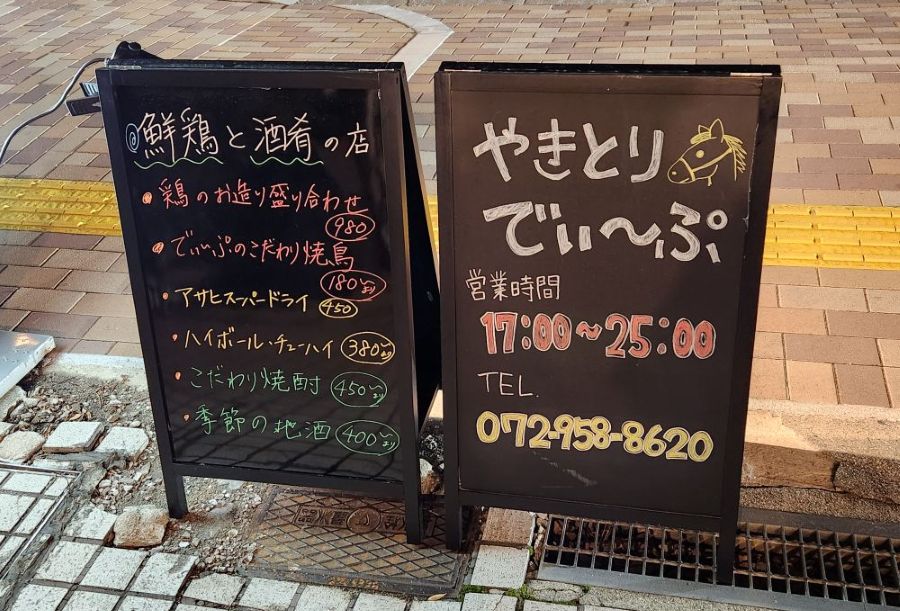 鮮鶏と酒肴の店
鶏のお造り盛り合わせ
980
でぃ〜ぷのこだわり焼鳥
180〜より
アサヒスーパードライ 450
ハイボール・チューハイ 380〜より
こだわり焼酎 450〜より
季節の地酒 400〜より
やきとり
でぃ〜ぷ
営業時間
17:00〜25:00
TEL.
072-958-8620